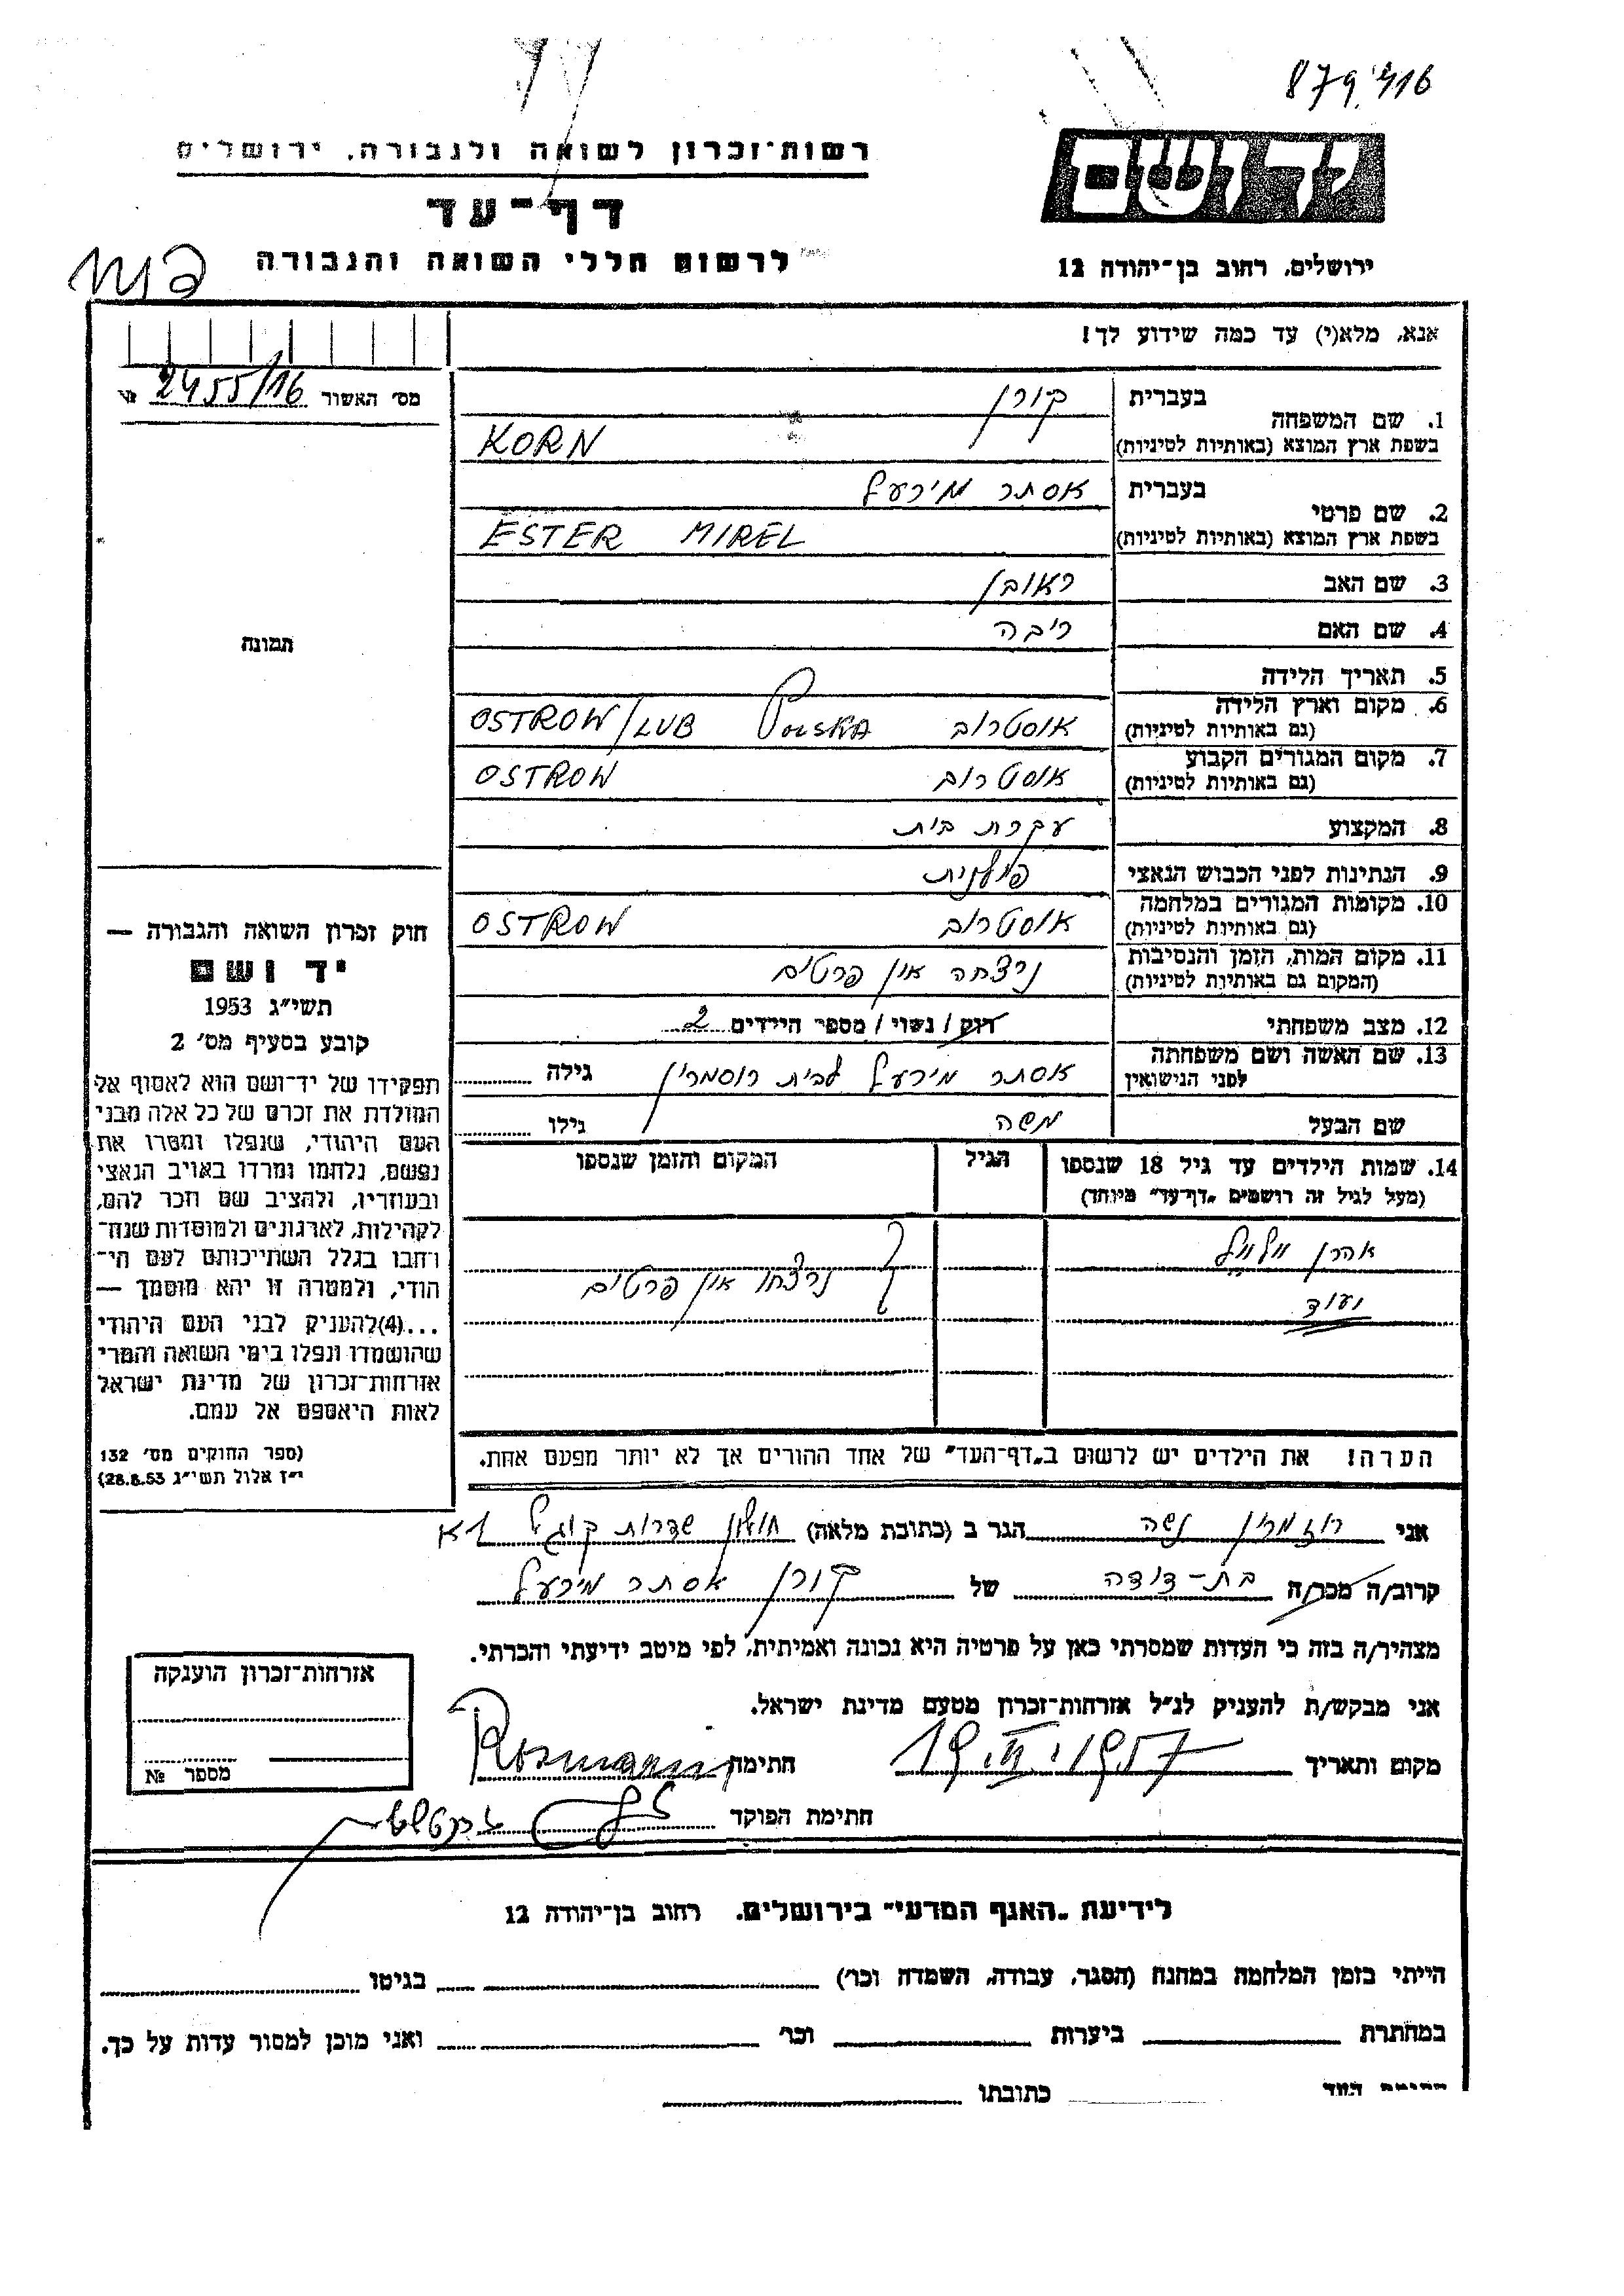 879,416
רשות־זכרון לשואה ולגבורה, ירושלים
דף־עד
לרשום חללי השואה והגבורה
יד ושם
ירושלים, רחוב בן־יהודה 12
אנא, מלא(י) עד כמה שידוע לך!
מס׳ האשור 2455/16 №
תמונה
1. שם המשפחה
בעברית קורן
בשפת ארץ המוצא (באותיות לטיניות) KORN
2. שם פרטי
בעברית אסתר מירעל
בשפת ארץ המוצא (באותיות לטיניות) ESTER MIREL
3. שם האב ראובן
4. שם האם ריבה
5. תאריך הלידה
6. מקום וארץ הלידה
(גם באותיות לטיניות) אוסטרוב POLSKA OSTROW/LUB
7. מקום המגורים הקבוע
(גם באותיות לטיניות) אוסטרוב OSTROW
8. המקצוע עקרת בית
9. הנתינות לפני הכבוש הנאצי פולנית
10. מקומות המגורים במלחמה
(גם באותיות לטיניות) אוסטרוב OSTROW
11. מקום המות, הזמן והנסיבות
(המקום גם באותיות לטיניות) נרצחה אין פרטים
12. מצב משפחתי רוק / נשוי / מספר הילדים 2
13. שם האשה ושם משפחתה
לפני הנישואין אסתר מירעל לבית רוסמרין גילה
שם הבעל משה גילו
14. שמות הילדים עד גיל 18 שנספו הגיל המקום והזמן שנספו
(מעל לגיל זה רושמים „דף־עד״ מיוחד)
אהרן
ועוד נרצחו אין פרטים
הערה! את הילדים יש לרשום ב„דף־העד״ של אחד ההורים אך לא יותר מפעם אחת.
חוק זכרון השואה והגבורה —
יד ושם
תשי״ג 1953
קובע בסעיף מס׳ 2
תפקידו של יד־ושם הוא לאסוף אל
המולדת את זכרם של כל אלה מבני
העם היהודי, שנפלו ומסרו את
נפשם, נלחמו ומרדו באויב הנאצי
ובעוזריו, ולהציב שם וזכר להם,
לקהילות, לארגונים ולמוסדות שנח־
רבו בגלל השתייכותם לעם הי־
הודי, ולמטרה זו יהא מוסמך —
...(4) להעניק לבני העם היהודי
שהושמדו ונפלו בימי השואה והמרי
אזרחות־זכרון של מדינת ישראל
לאות היאספם אל עמם.
(ספר החוקים מס׳ 132
י״ז אלול תשי״ג 28.8.53)
אני רוזמרין משה הגר ב (כתובת מלאה) חולון שדרות קוגל 1א
קרוב/ה מכר/ה בת-דודה של קורן אסתר מירעל
מצהיר/ה בזה כי העדות שמסרתי כאן על פרטיה היא נכונה ואמיתית, לפי מיטב ידיעתי והכרתי.
אני מבקש/ת להעניק לנ״ל אזרחות־זכרון מטעם מדינת ישראל.
מקום ותאריך 19.VI.1957 חתימה Rosmarin
חתימת הפוקד
אזרחות־זכרון הוענקה
מספר №
לידיעת „האגף המדעי״ בירושלים, רחוב בן־יהודה 12
הייתי בזמן המלחמה במחנה (הסגר, עבודה, השמדה וכו׳) בגיטו
במחתרת ביערות וכו׳ ואני מוכן למסור עדות על כך.
חתימת העד כתובתו